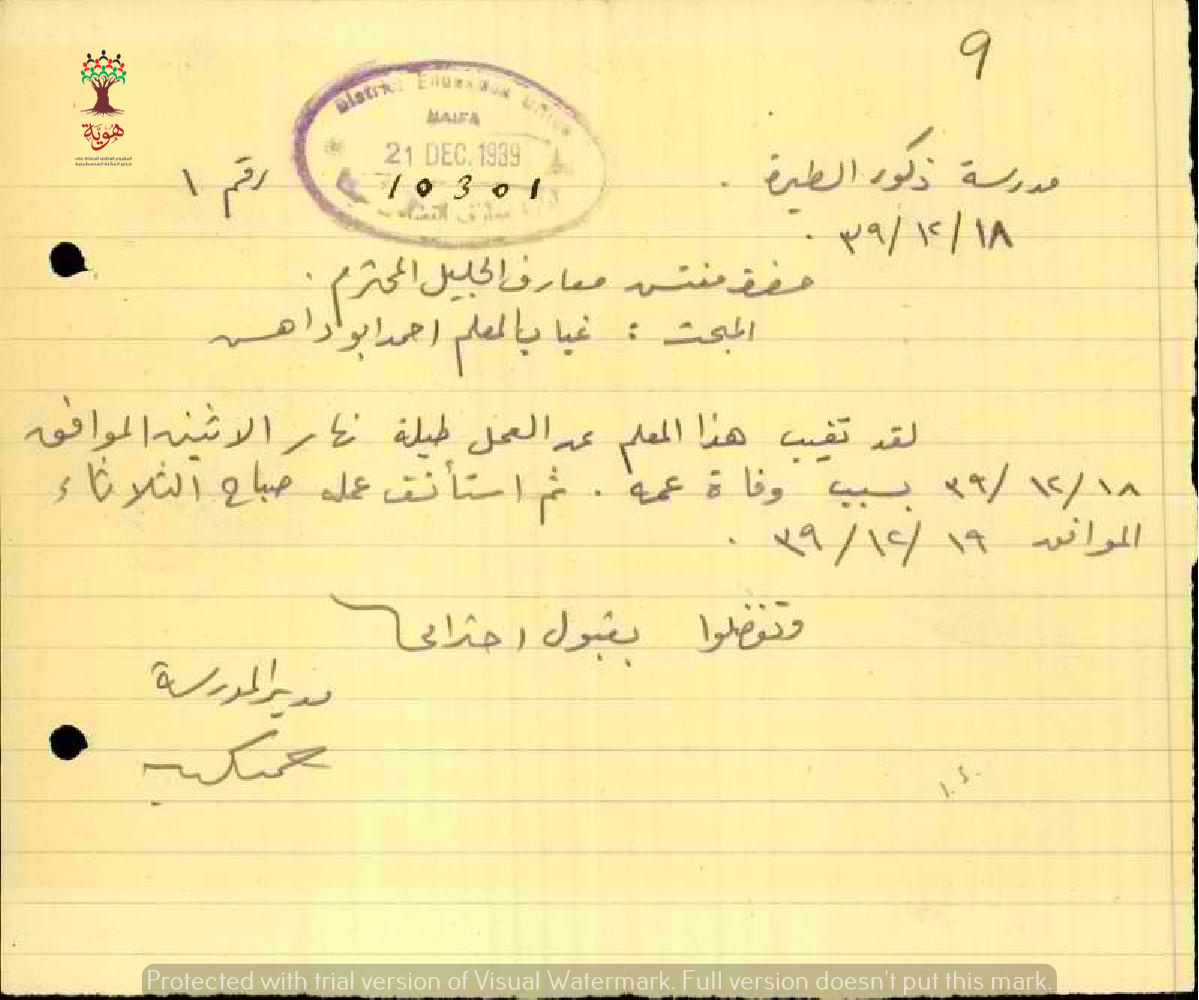 9
هوية
District Education Office
HAIFA
21 DEC. 1939
10301
مدرسة ذكور الطيرة .
رقم ١
٣٩/١٢/١٨ .
حضرة مفتش معارف الجليل المحترم .
المبحث : غياب المعلم احمد ابو داهس
لقد تغيب هذا المعلم عن العمل طيلة نهار الاثنين الموافق
٣٩/١٢/١٨ بسبب وفاة عمه . ثم استأنف عمله صباح الثلاثاء
الموافق ٣٩/١٢/١٩ .
وتفضلوا بقبول احترامي
مدير المدرسة
Protected with trial version of Visual Watermark. Full version doesn't put this mark.